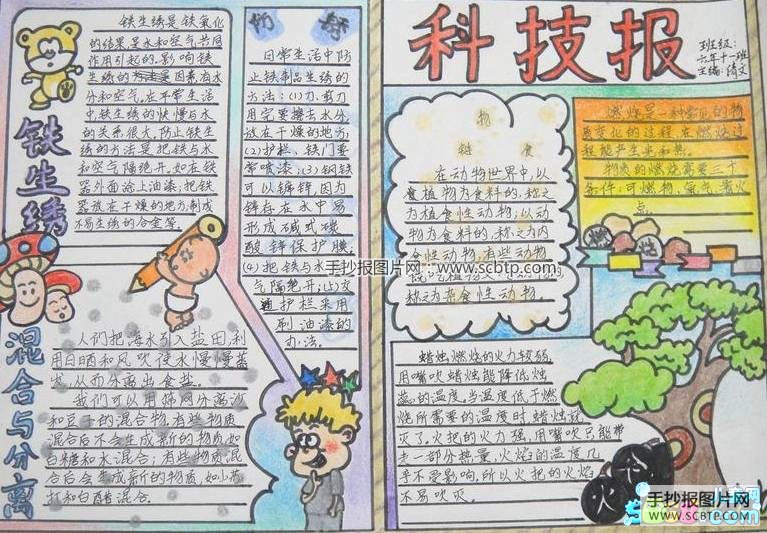 铁生锈是铁氧化
的结果是水和空气共同
作用引起的.影响铁
生锈的因素有水
分和空气.在平常生活
中铁生锈的快慢与水
的关系很大.防止铁生
锈的方法是把铁与水
和空气隔绝开.如在铁
器外面涂上油漆.把铁
器放在干燥的地方制成
不易生锈的合金等。
铁生锈
防锈
日常生活中防
止铁制品生锈的
方法:(1)刀、剪刀
用完要擦去水分.
放在干燥的地方;
(2)护栏、铁门要
常喷漆;(3)钢铁
可以镀锌,因为
锌存在水中易
形成碱式碳
酸锌保护膜;
(4)把铁与水
气隔绝开;(5)交
通护栏采用
刷油漆的
办法。
混合与分离
人们把海水引入盐田,利
用日晒和风吹使水慢慢蒸
发,从而分离出食盐。
我们可以用筛网分离沙
和豆子的混合物.有些物质
混合后不会生成新的物质如
白糖和水混合;有些物质混
合后会生成新的物质.如小苏
打和白醋混合.
科技报
班级:
六年十一班
主编:绮文
食物链
在动物世界中,以
食植物为食料的,称之
为植食性动物;以动
物为食料的,称之为肉
食性动物,有些动物
称之为杂食性动物.
燃烧是一种常见的物
质变化的过程.在燃烧过
程能产生光和热。
物质的燃烧需要三个
条件:可燃物、氧气、着火
点。
燃烧
蜡烛燃烧的火力较弱,
用嘴吹蜡烛能降低蜡
烛的温度,当温度低于燃
烧所需要的温度时蜡烛就
灭了.火把的火力强,用嘴吹只能带
走一部分热量,火焰的温度几
乎不受影响,所以火把的火焰
不易吹灭.
手抄报图片网:www.scbtp.com
手抄报图片网
WWW.SCBTP.COM